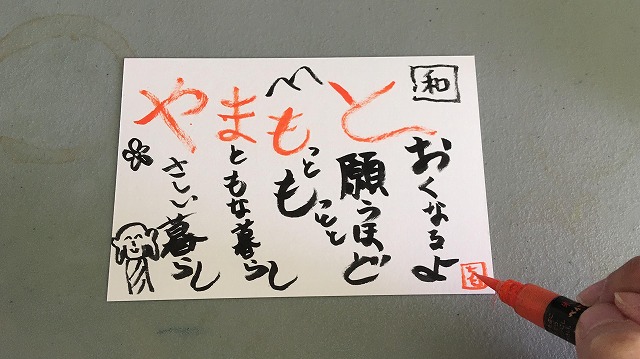 やまもと
さしい暮らし
ともな暮らし
っともっとと
願うほど
おくなるよ
和